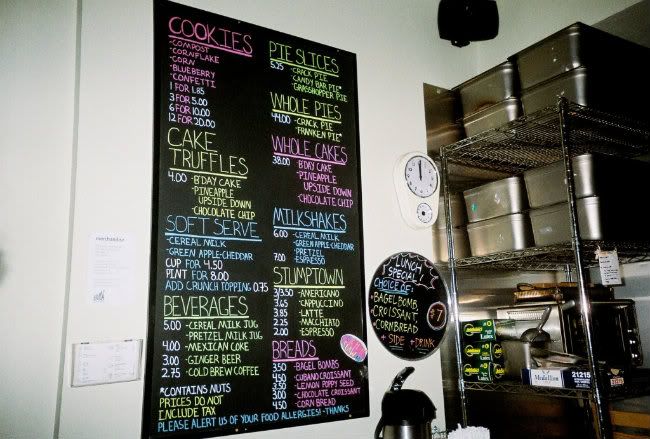 COOKIES
-COMPOST
-CORNFLAKE
-CORN
-BLUEBERRY
-CONFETTI
1 FOR 1.85
3 FOR 5.00
6 FOR 10.00
12 FOR 20.00
CAKE
TRUFFLES
4.00 -B'DAY CAKE
-PINEAPPLE
UPSIDE DOWN
-CHOCOLATE CHIP
SOFT SERVE
-CEREAL MILK
-GREEN APPLE-CHEDDAR
CUP FOR 4.50
PINT FOR 8.00
ADD CRUNCH TOPPING 0.75
BEVERAGES
5.00 -CEREAL MILK JUG
-PRETZEL MILK JUG
4.00 -MEXICAN COKE
3.00 -GINGER BEER
2.75 -COLD BREW COFFEE
*CONTAINS NUTS
PRICES DO NOT
INCLUDE TAX
PLEASE ALERT US OF YOUR FOOD ALLERGIES! -THANKS
PIE SLICES
5.25 -CRACK PIE
-CANDY BAR PIE*
-GRASSHOPPER PIE
WHOLE PIES
44.00 -CRACK PIE
-FRANKEN PIE*
WHOLE CAKES
38.00 -B'DAY CAKE
-PINEAPPLE
UPSIDE DOWN
-CHOCOLATE CHIP
MILKSHAKES
6.00 -CEREAL MILK
-GREEN APPLE-CHEDDAR
-PRETZEL
7.00 -ESPRESSO
STUMPTOWN
3/3.50 -AMERICANO
3.65 -CAPPUCCINO
3.85 -LATTE
2.25 -MACCHIATO
2.00 -ESPRESSO
BREADS
3.50 -BAGEL BOMBS
-CUBANO CROISSANT
-LEMON POPPY SEED
-CHOCOLATE CROISSANT
-CORN BREAD
LUNCH
SPECIAL
CHOICE OF:
-BAGEL BOMB,
-CROISSANT,
-CORNBREAD
+ SIDE + DRINK
$7
merchandise
Medallion
2215